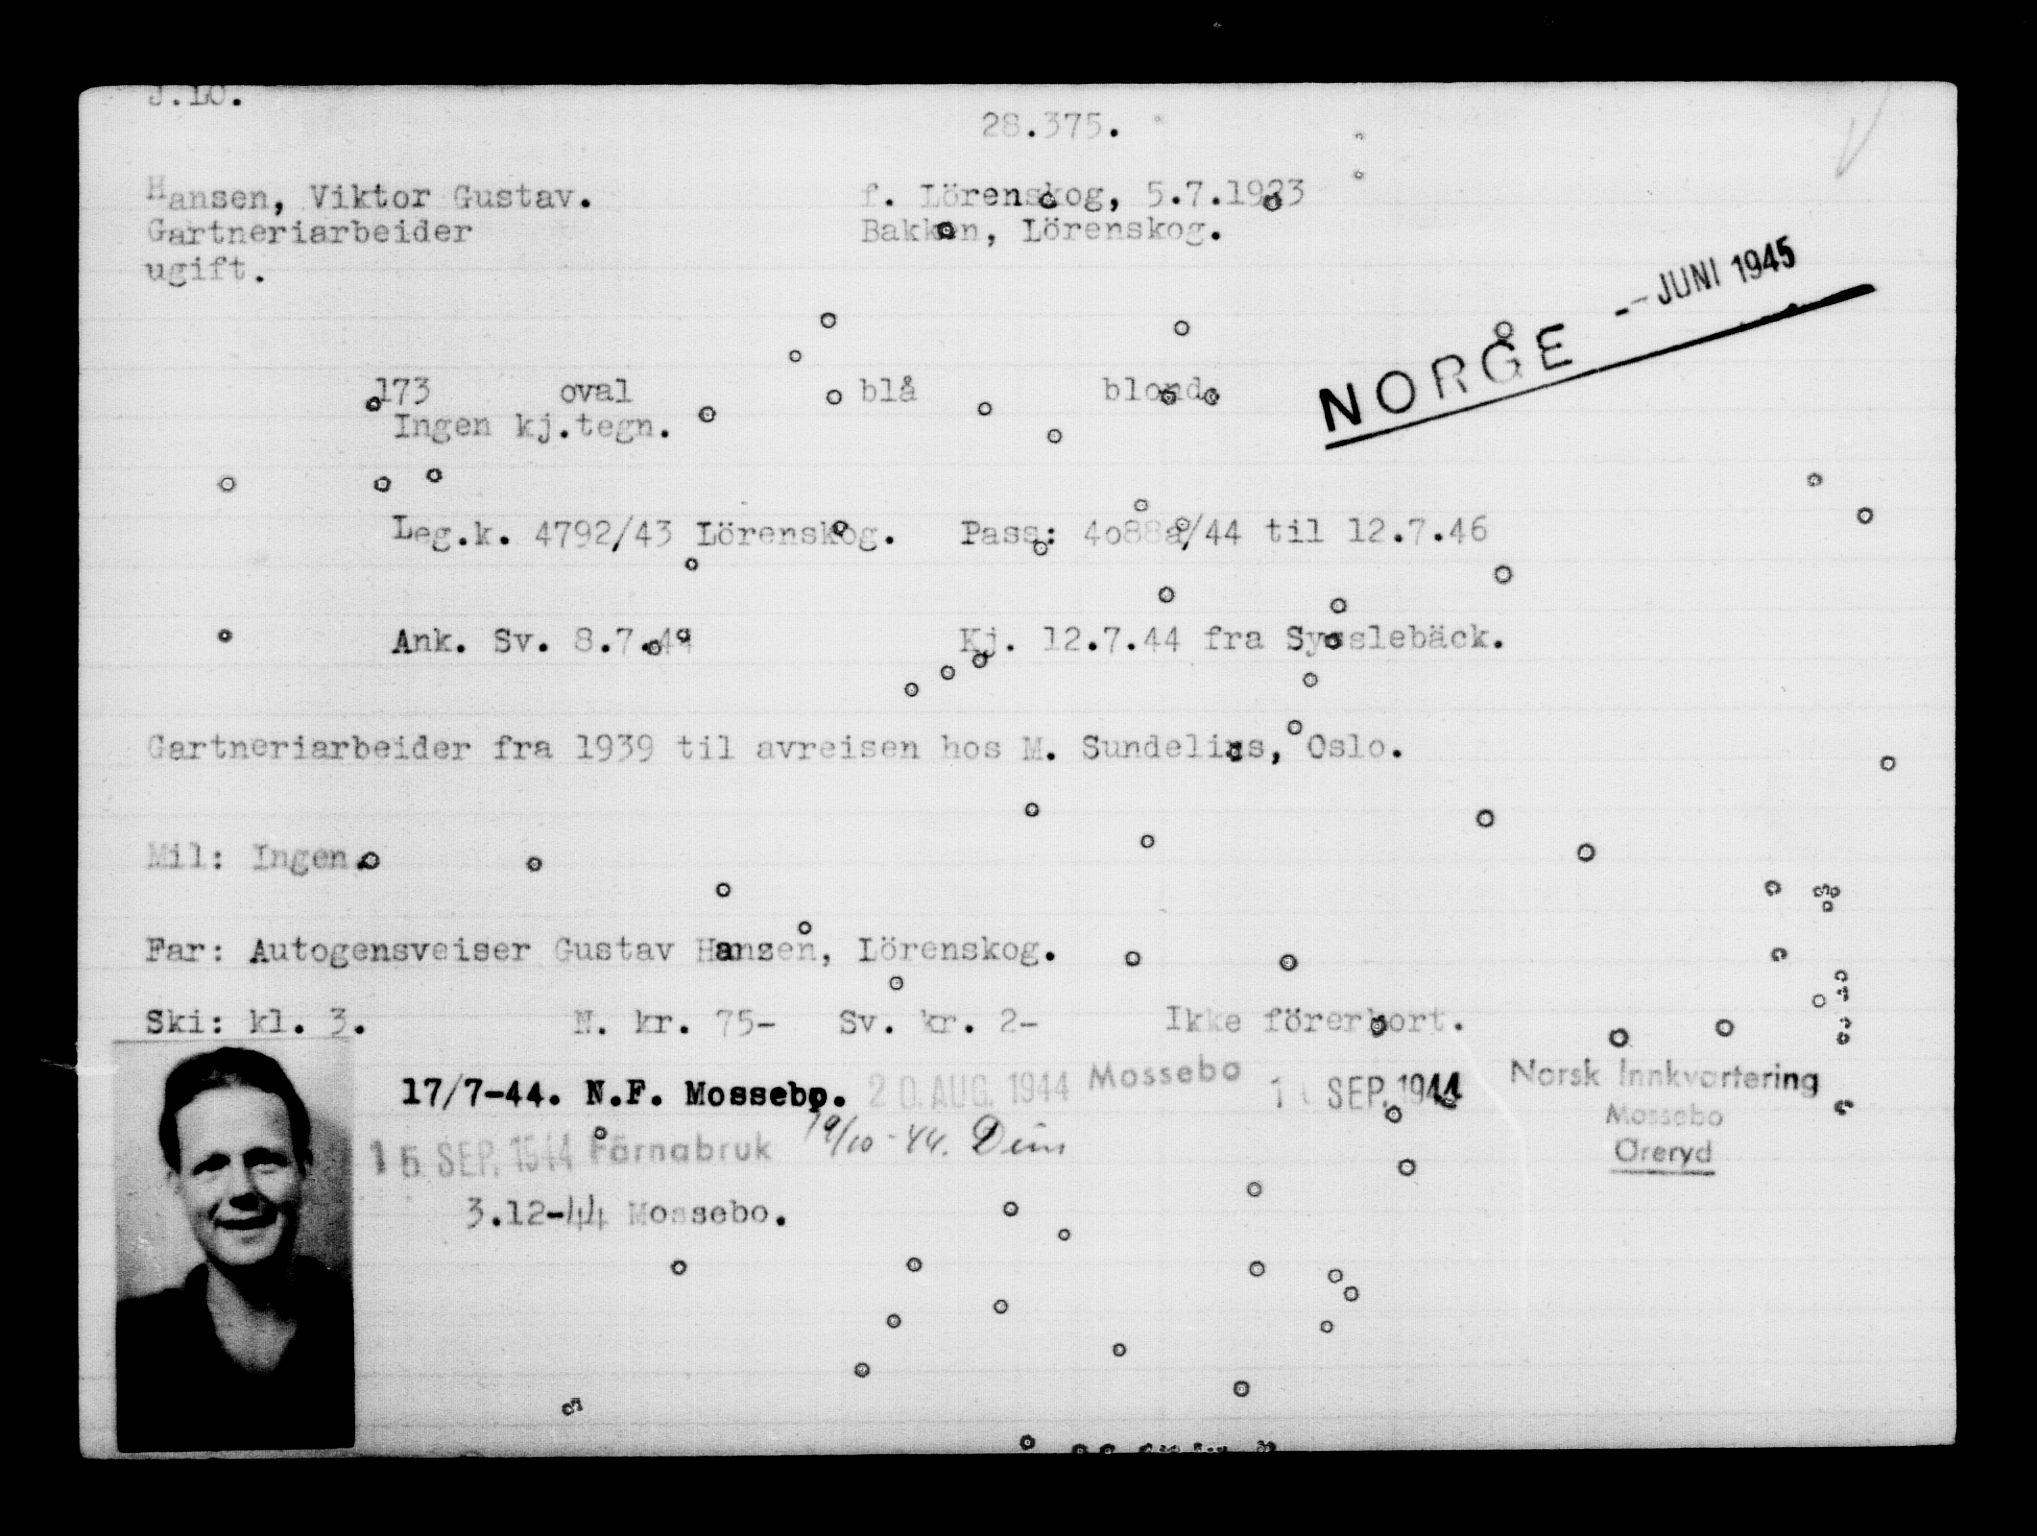 J.Lö.
28.375.
Hansen, Viktor Gustav. f. Lörenskog, 5.7.1923
Gartneriarbeider Bakken, Lörenskog.
ugift.
NORGE -- JUNI 1945
173 oval blå blond.
Ingen kj.tegn.
Leg.k. 4792/43 Lörenskog. Pass: 4o88a/44 til 12.7.46
Ank. Sv. 8.7.44 Kj. 12.7.44 fra Sysslebäck.
Gartneriarbeider fra 1939 til avreisen hos M. Sundelius, Oslo.
Mil: Ingen.
Far: Autogensveiser Gustav Hansen, Lörenskog.
Ski: kl. 3. N. kr. 75- Sv. kr. 2- Ikke förerkort.
17/7-44. N.F. Mossebo. 20. AUG. 1944 Mossebo SEP. 1944 Norsk Innkvartering
Mossebo
Öreryd
15 SEP. 1944 Färnabruk 19/10-44.
3.12-44 Mossebo.